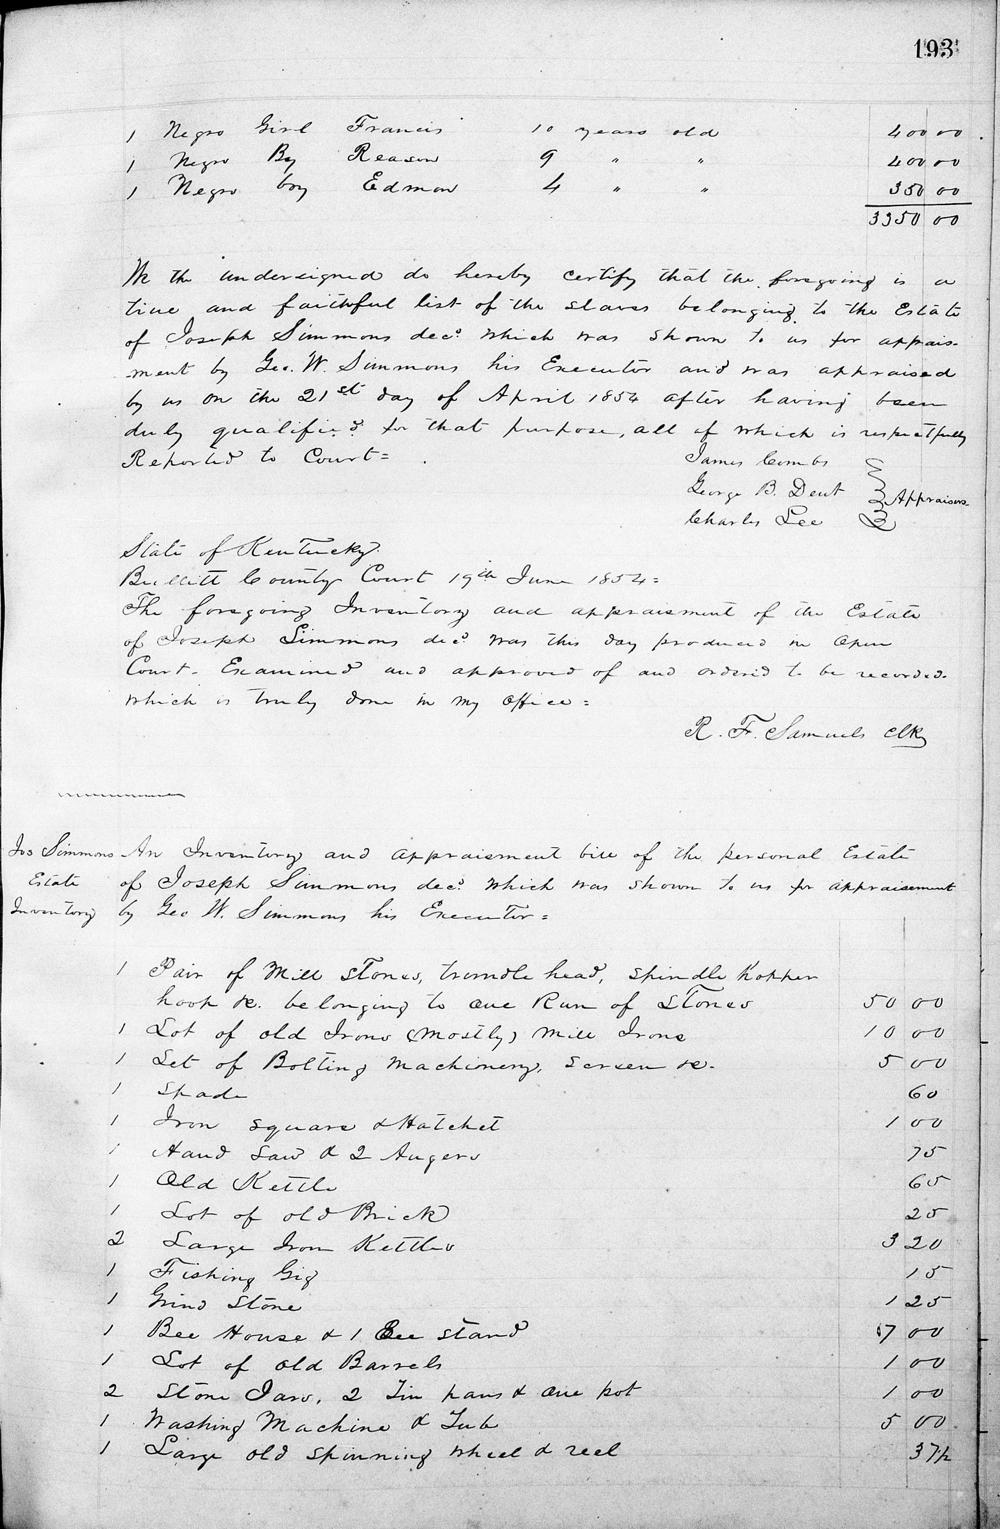 193
1 Negro Girl Francis 10 years old 400 00
1 Negro By Reason 9 " " 400 00
1 Negro boy Edmon 4 " " 350 00
3350 00
We the undersigned do hereby certify that the foregoing is a
true and faithful list of the slaves belonging to the Estate
of Joseph Simmons decd. which was shown to us for apprais-
ment by Geo. W. Simmons his Executor and was appraised
by us on the 21st day of April 1854 after having been
duly qualified for that purpose, all of which is respectfully
Reported to Court=
James Combs
George B. Dent Appraisers
Charles Lee
State of Kentucky.
Bullitt County Court 19th June 1854=
The foregoing Inventory and appraisment of the Estate
of Joseph Simmons decd. was this day produced in Open
Court. Examined and approved of and ordered to be recorded.
which is truly done in my office=
R. F. Samuels Clk
Jos Simmons
Estate
Inventory
An Inventory and appraisment bill of the personal Estate
of Joseph Simmons decd. which was shown to us for appraisement
by Geo W. Simmons his Executor=
1 Pair of Mill Stones, trundle head, spindle Hopper
hoop &c. belonging to one Run of Stones 50 00
1 Lot of old Irons (mostly) Mill Irons 10 00
1 Set of Bolting Machinery, Screen &c. 5 00
1 Spade 60
1 Iron square & Hatchet 1 00
1 Hand Saw & 2 Augers 75
1 Old Kettle 65
1 Lot of old Brick 25
2 Large Iron Kettles 3 20
1 Fishing Gig 15
1 Grind Stone 1 25
1 Bee House & 1 Bee stand 7 00
1 Lot of old Barrels 1 00
2 Stone Jars, 2 Tin pans & one pot 1 00
1 Washing Machine & Tub 5 00
1 Large old spinning wheel & reel 37½